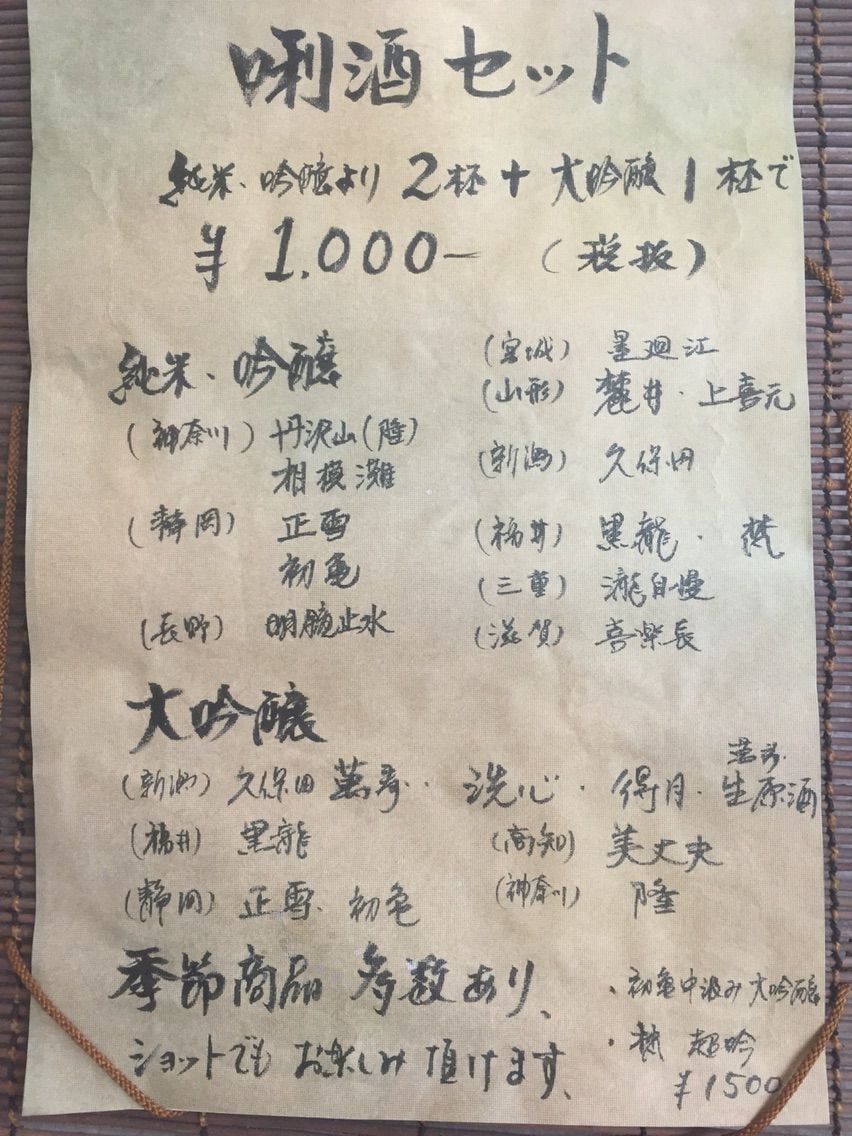 唎酒セット
純米、吟醸より 2杯+大吟醸1杯で
¥1,000- (税抜)
純米、吟醸
(神奈川) 丹沢山(隆)
相模灘
(静岡) 正雪
初亀
(長野) 明鏡止水
(宮城) 墨廼江
(山形) 麓井・上喜元
(新潟) 久保田
(福井) 黒龍・梵
(三重) 瀧自慢
(滋賀) 喜楽長
大吟醸
(新潟) 久保田 萬寿・洗心・得月・萬寿生原酒
(福井) 黒龍
(高知) 美丈夫
(静岡) 正雪、初亀
(神奈川) 隆
季節商品 多数あり、
ショットでも お楽しみ頂けます、
・初亀中汲み大吟醸
・梵 超吟
¥1500